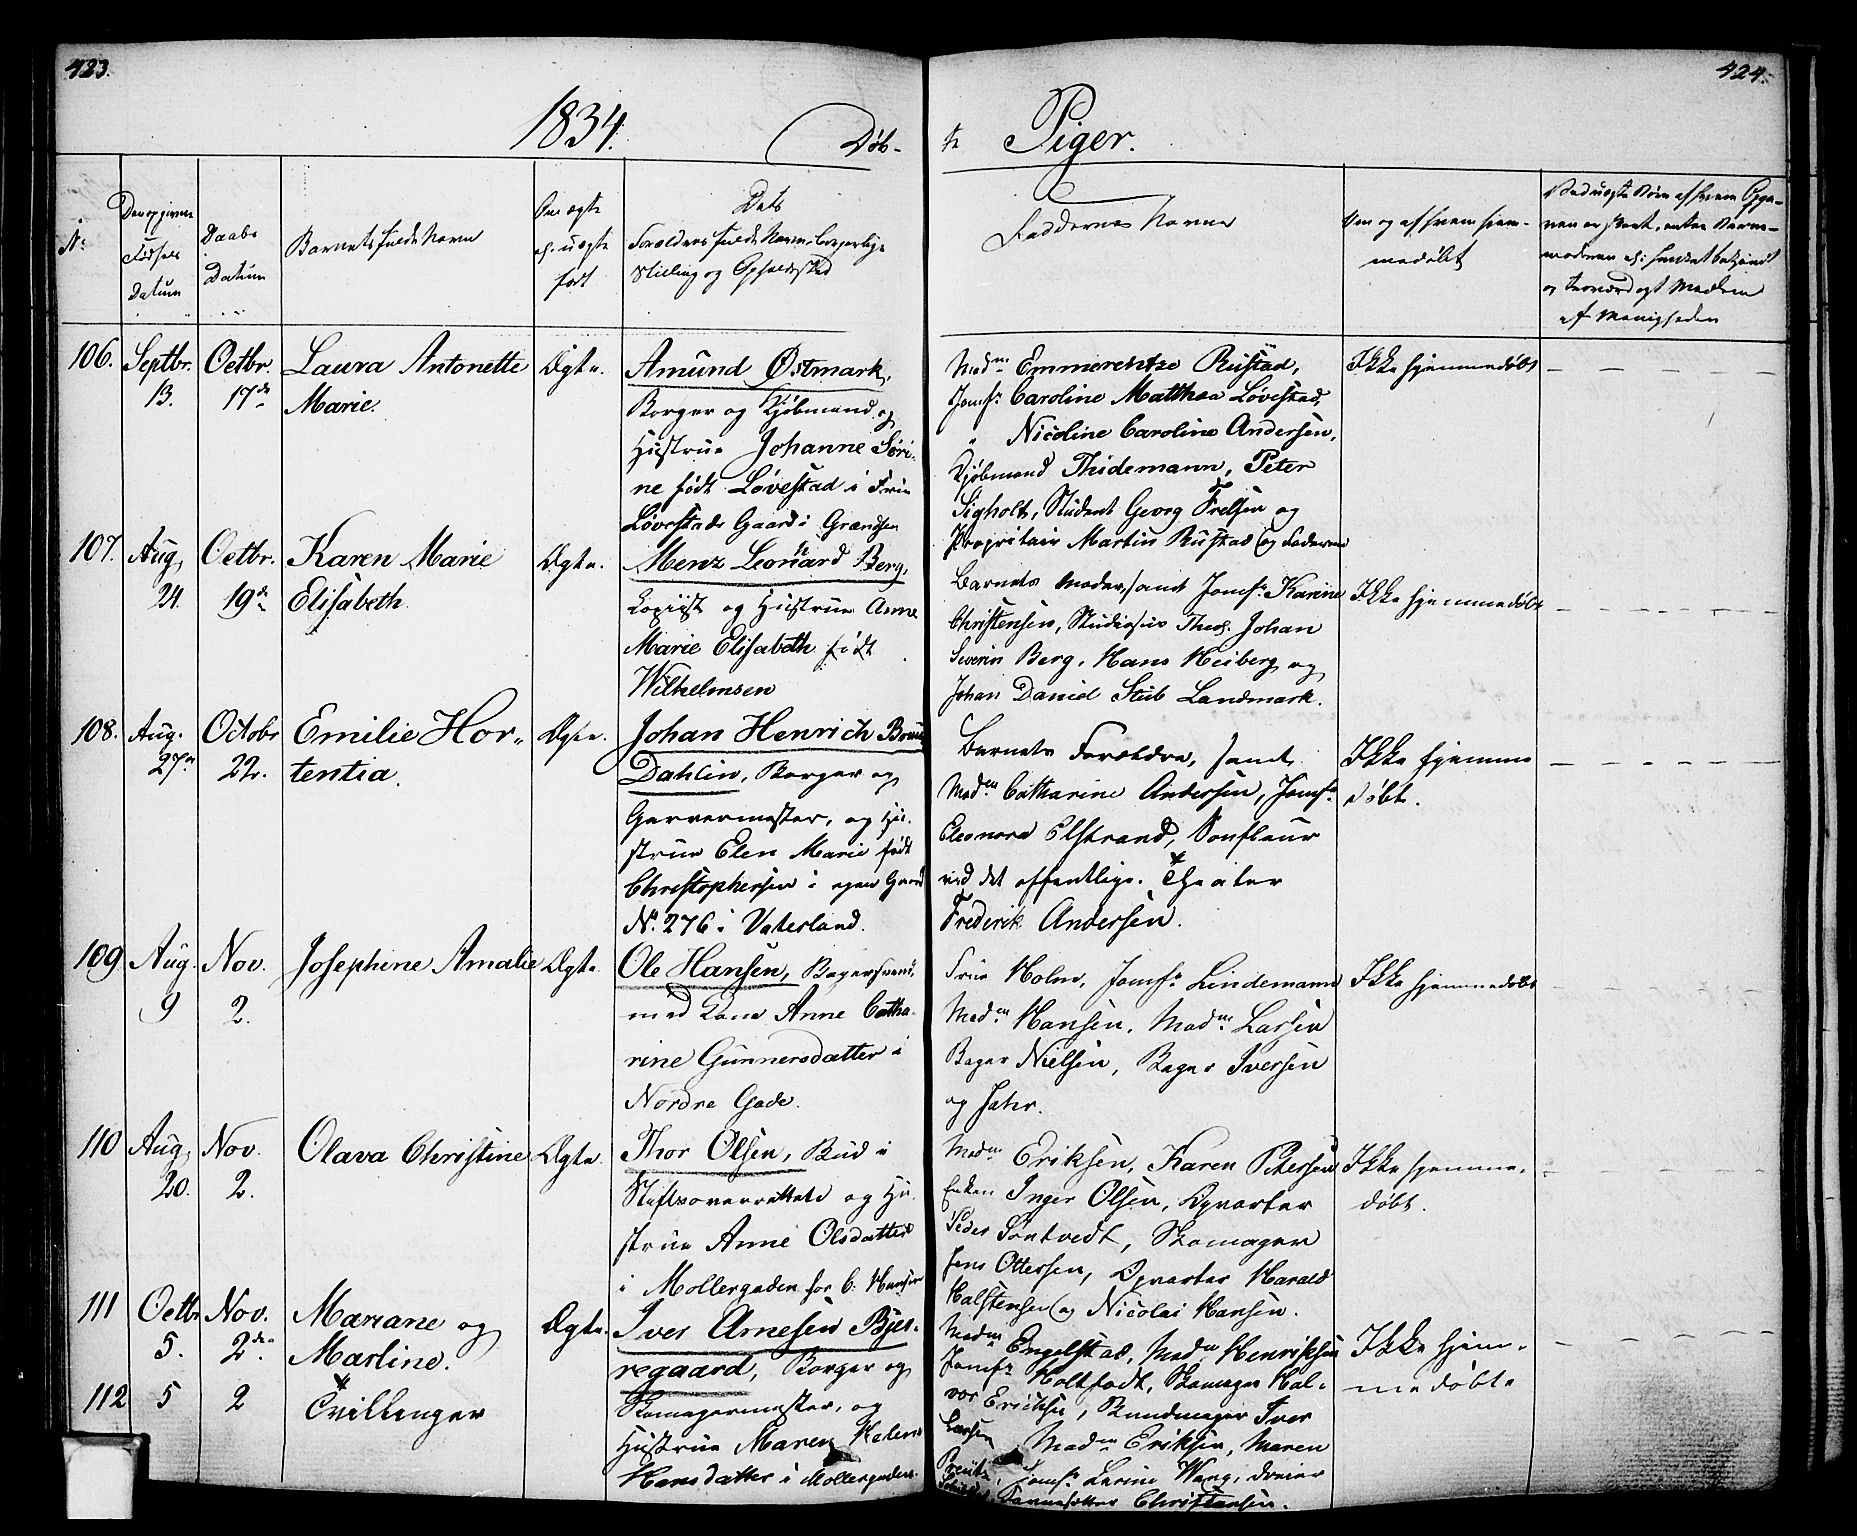 423.
424.
1834.
Døb-
te Piger.
No
Den opgivne
Fødsels
Datum
Daabs
Datum
Barnets fulde Navn
Om ægte
el. uægte
født
Dets
Forældres fulde Navn, borgerlige
Stilling og Opholdssted
Faddernes Navne
Om og af hvem hjem-
medøbt
og troværdigt Medlem
af Menigheden
106. Septbr. 13. Octbr. 17de Laura Antonette
Marie.
Ægte.
Amund Østmark,
Borger og Kjøbmand og
Hustrue Johanne Søri-
ne født Løvestad i Frue
Løvestads Gaard i Grændsen
Madm Emmerentze Rustad,
Jomfr Caroline Matthea Løvestad,
" Nicoline Caroline Andersen,
Kjøbmand Thidemann, Peter
Sigholt, Student Georg Frelsen og
Propritair Martin Rustad (og Faderen
Ikke hjemmedøbt
107. Aug. 24. Octbr. 19de Karen Marie
Elisabeth.
Ægte.
Menz Leonard Berg,
Copiist og Hustrue Anne
Marie Elisabeth født
Wilhelmsen
Barnets Moder, samt Jomfr Karine
Christensen, Studiosus Theol. Johan
Severin Berg, Hans Heiberg og
Johan Daniel Stub Landmark.
Ikke hjemmedøbt
108. Aug. 27de Octobr 22. Emilie Hor-
tentia.
Ægte.
Johan Henrich Bruun
Dahlin, Borger og
Garvermester, og Hu-
strue Elen Marie født
Christophersen i egen Gaard
No. 276 i Vaterland.
Barnets Forældre, samt
Madm Catharine Andersen, Jomfr
Eleonora Elstrand, Soufleur
ved det offentlige Theater
Frederik Andersen.
Ikke hjemme
døbt.
109 Aug. 9 Nov. 2. Josephine Amalie
Ægte.
Ole Hansen, Bagersvend,
med Kone Anne Catha-
rine Gunnersdatter i
Nordre Gade.
Frue Holm, Jomfr Lindemann
Madm Hansen, Madm Larsen
Bager Nielsen, Bager Iversen
og Fater.
Ikke hjemmedøbt
110 Aug. 20. Nov. 2. Olava Christine
Ægte.
Thor Olsen, Bud i
Stiftsoverretten og Hu-
strue Anne Olsdatter
i Møllergaden for C. Hansen
Madm Eriksen, Karen Petersen
Enken Inger Olsen, Opvarter
Peder Tontvedt, Skomager
Jens Ottersen, Opvarter Harald
Halstensen (og Nicolai Hansen.
Ikke hjemme-
døbt.
111 Octbr 5. Nov. 2den Mariane og
Marline.
112 5 2 Tvillinger
Ægte.
Iver Arnesen Bjer-
regaard, Borger og
Skomagermester, og
Hustrue Maren Helene
Hansdatter i Møllergaden.
Madm Engelstad, Madm Henriksen
Jomfr Holtfodt, Skomager Hal-
vor Ericksen, Bundmager Iver
Larsen
Madm Eriksen, Maren
Jomfr Larine Wang, Dreier
Christensen.
Ikke hjem-
medøbte